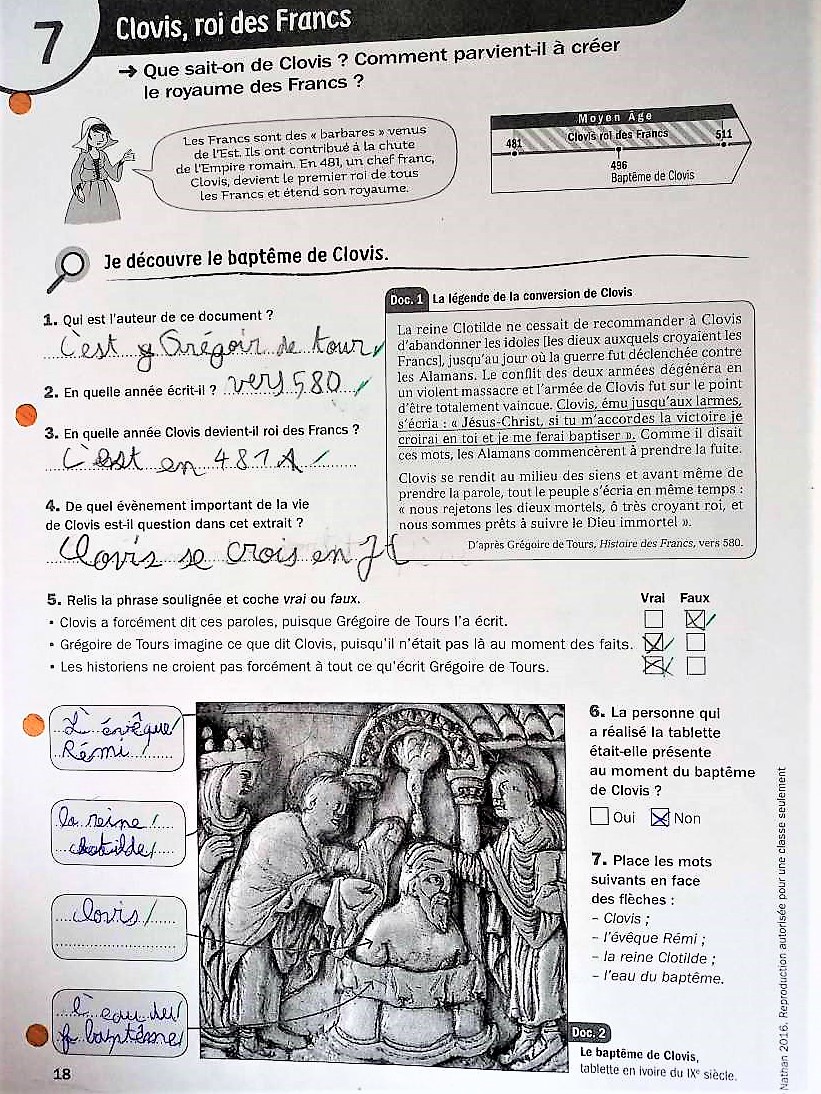 7
Clovis, roi des Francs
→ Que sait-on de Clovis ? Comment parvient-il à créer
le royaume des Francs ?
Les Francs sont des « barbares » venus
de l'Est. Ils ont contribué à la chute
de l'Empire romain. En 481, un chef franc,
Clovis, devient le premier roi de tous
les Francs et étend son royaume.
Moyen Âge
481
Clovis roi des Francs
511
496
Baptême de Clovis
Je découvre le baptême de Clovis.
1. Qui est l'auteur de ce document ?
C'est g Grégoir de tour
2. En quelle année écrit-il ? vers 580
3. En quelle année Clovis devient-il roi des Francs ?
C'est en 481
4. De quel évènement important de la vie
de Clovis est-il question dans cet extrait ?
Clovis se crois en JC
Doc. 1 La légende de la conversion de Clovis
La reine Clotilde ne cessait de recommander à Clovis
d'abandonner les idoles [les dieux auxquels croyaient les
Francs], jusqu'au jour où la guerre fut déclenchée contre
les Alamans. Le conflit des deux armées dégénéra en
un violent massacre et l'armée de Clovis fut sur le point
d'être totalement vaincue. Clovis, ému jusqu'aux larmes,
s'écria : « Jésus-Christ, si tu m'accordes la victoire je
croirai en toi et je me ferai baptiser ». Comme il disait
ces mots, les Alamans commencèrent à prendre la fuite.
Clovis se rendit au milieu des siens et avant même de
prendre la parole, tout le peuple s'écria en même temps :
« nous rejetons les dieux mortels, ô très croyant roi, et
nous sommes prêts à suivre le Dieu immortel ».
D'après Grégoire de Tours, Histoire des Francs, vers 580.
5. Relis la phrase soulignée et coche vrai ou faux.
Vrai Faux
• Clovis a forcément dit ces paroles, puisque Grégoire de Tours l'a écrit.
• Grégoire de Tours imagine ce que dit Clovis, puisqu'il n'était pas là au moment des faits.
• Les historiens ne croient pas forcément à tout ce qu'écrit Grégoire de Tours.
L'évêque
Rémi
la reine
clotilde
clovis
l'eau du
baptême
6. La personne qui
a réalisé la tablette
était-elle présente
au moment du baptême
de Clovis ?
Oui Non
7. Place les mots
suivants en face
des flèches :
– Clovis ;
– l'évêque Rémi ;
– la reine Clotilde ;
– l'eau du baptême.
Doc. 2
Le baptême de Clovis,
tablette en ivoire du IXe siècle.
18
Nathan 2016. Reproduction autorisée pour une classe seulement